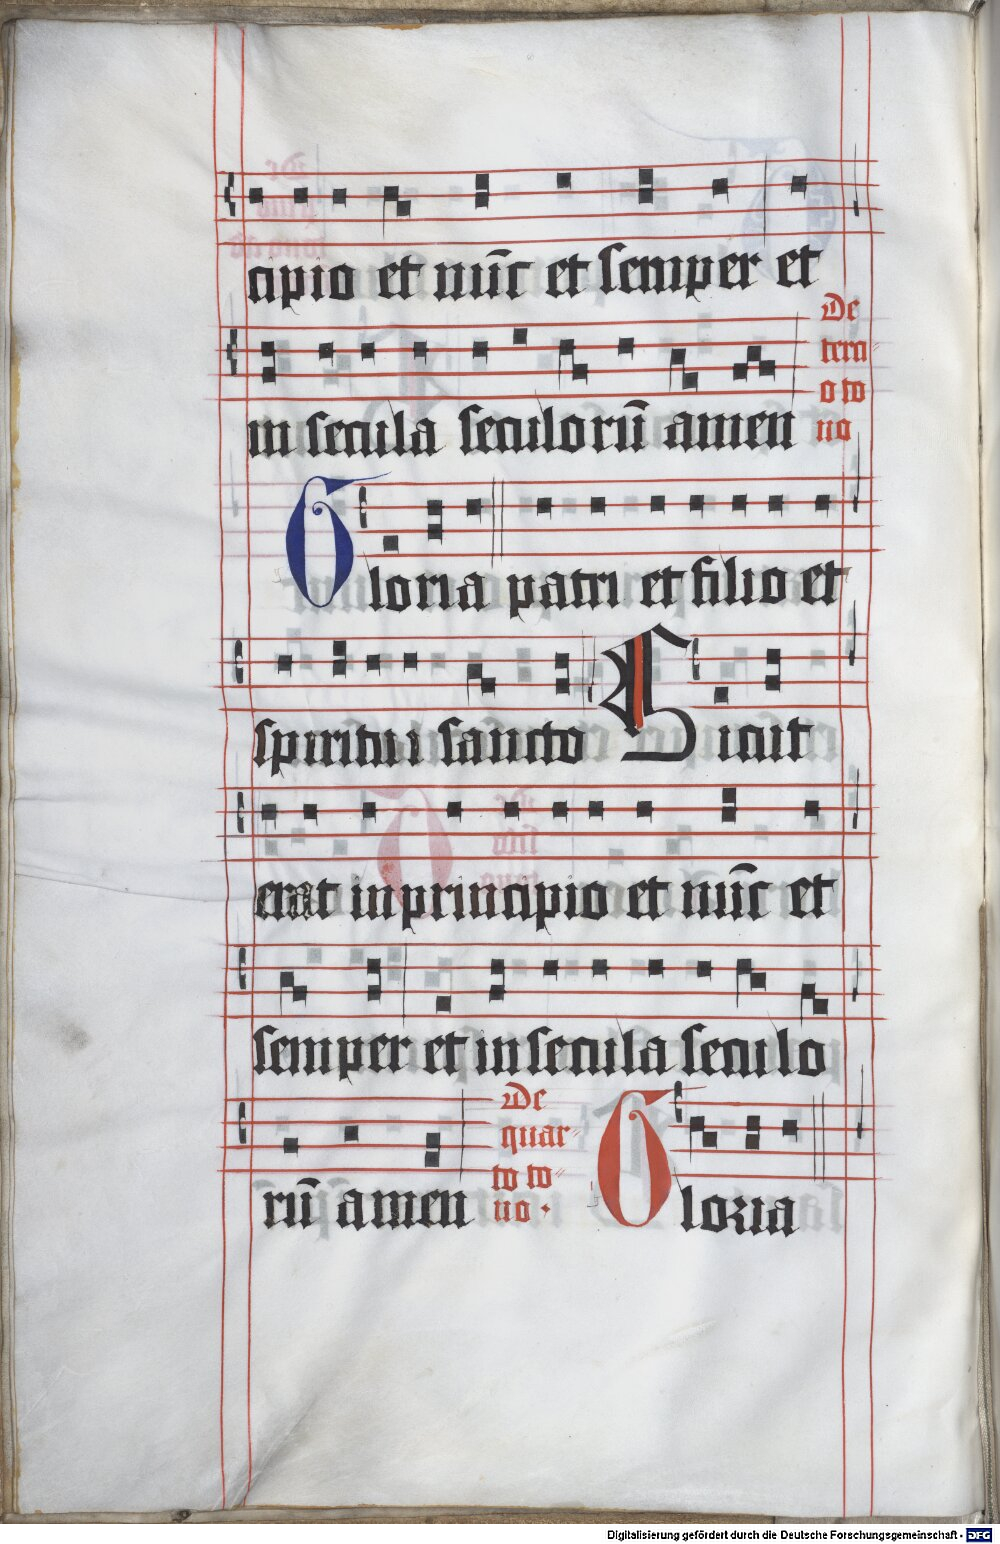 cipio et nūc et semper et
De
in secula seculorū amen
terci-
o to
no
Gloria patri et filio et
spiritui sancto Sicut
erat in principio et nūc et
semper et in secula seculo
rū amen
De
quar-
to to-
no.
Gloria
Digitalisierung gefördert durch die Deutsche Forschungsgemeinschaft - DFG